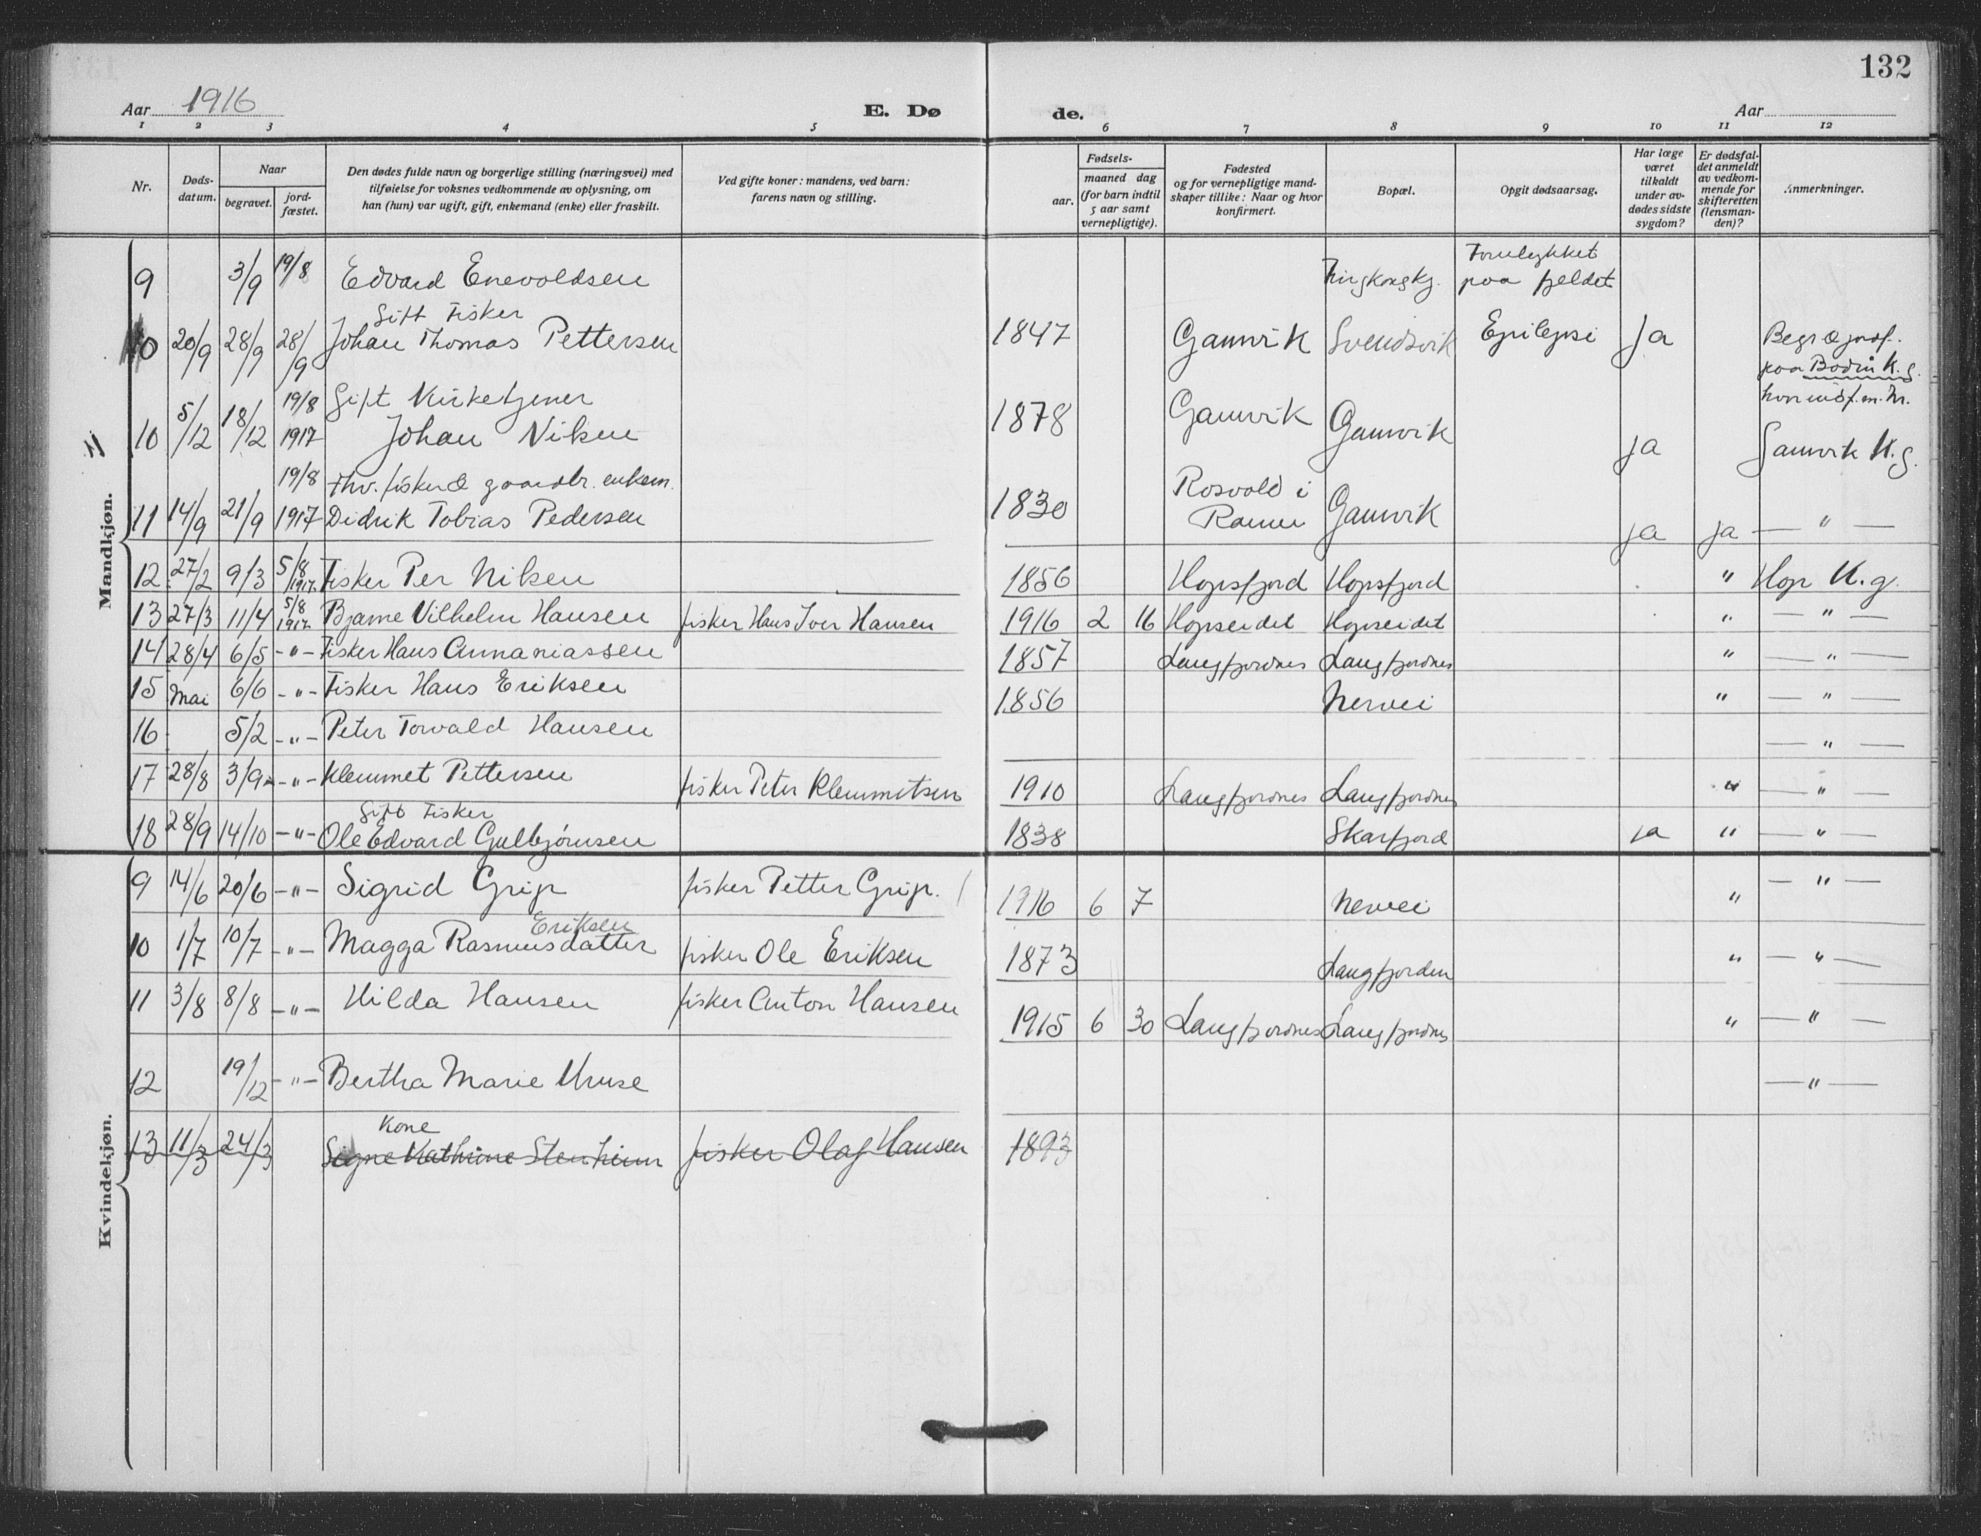 132
Aar 1916 E. Dø de. Aar
1 2 3 4 5 6 7 8 9 10 11 12
Nr. Døds-datum. Naar begravet. jord-fæstet. Den dødes fulde navn og borgerlige stilling (næringsvei) med tilføielse for voksnes vedkommende av oplysning, om han (hun) var ugift, gift, enkemand (enke) eller fraskilt. Ved gifte koner: mandens, ved barn: farens navn og stilling. Fødsels- aar. maaned dag (for barn indtil 5 aar samt vernepligtige). Fødested og for vernepligtige mand-skaper tillike: Naar og hvor konfirmert. Bopæl. Opgit dødsaarsag. Har læge været tilkaldt under av-dødes sidste sygdom? Er dødsfal-det anmeldt av vedkom-mende for skifteretten (lensman-den)? Anmerkninger.
Mandkjøn.
9 3/9 19/8 Edvard Enevoldsen Forulykket paa fjeldet
Gift Fisker
10 20/9 28/9 28/9 Johan Thomas Pettersen 1847 Gamvik Svendsvik Epilepsi Ja
paa Bodin K.g.
19/8 Gift Kirketjener
11 10 5/12 18/12 1917 Johan Nilsen 1878 Gamvik Gamvik ja Gamvik K.g.
19/8 Fhv. fisker & gaardbr. enkem.
11 14/9 21/9 1917 Didrik Tobias Pedersen 1830 Rosvold i Ranen Gamvik ja ja — " —
12 27/2 9/3 5/8 1917 Fisker Per Nilsen 1856 Hopsfjord Hopsfjord " Hop K.g.
13 27/3 11/4 5/8 1917 Bjarne Vilhelm Hansen fisker Hans Iver Hansen 1916 2 16 Hopseidet Hopseidet " — " —
14 28/4 6/5 - " - Fisker Hans Annaniassen 1857 Langfjordnes Langfjordnes " — " —
15 Mai 6/6 - " - Fisker Hans Eriksen 1856 Nervei " — " —
16 5/2 - " - Peter Torvald Hansen — " —
17 28/8 3/9 - " - Klemmet Pettersen fisker Peter Klemmetsen 1910 Langfjordnes Langfjordnes " — " —
Gift Fisker
18 28/9 14/10 - " - Ole Edvard Gulbjørnsen 1838 Skarfjord ja " — " —
Kvindekjøn.
9 14/6 20/6 - " - Sigrid Grip fisker Petter Grip. 1916 6 7 Nervei " — " —
Eriksen
10 1/7 10/7 - " - Magga Rasmusdatter fisker Ole Eriksen 1873 Langfjorden " — " —
11 3/8 8/8 - " - Hilda Hansen fisker Anton Hansen 1915 6 30 Langfjordnes Langfjordnes " — " —
12 19/12 - " - Bertha Marie Kruse — " —
Kone
13 11/3 24/3 Signe Kathrine Stenheim fisker Olaf Hansen 1893